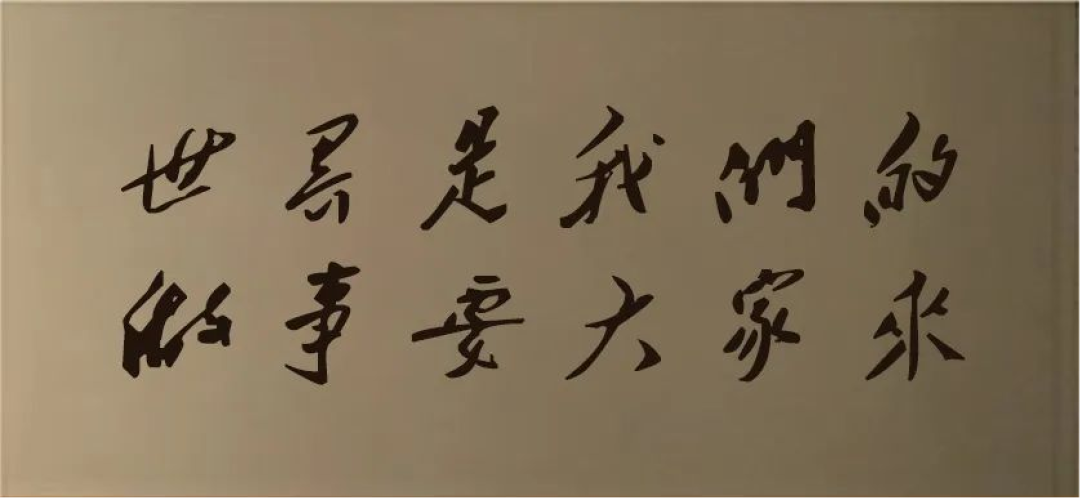 世界是我們的
做事要大家來